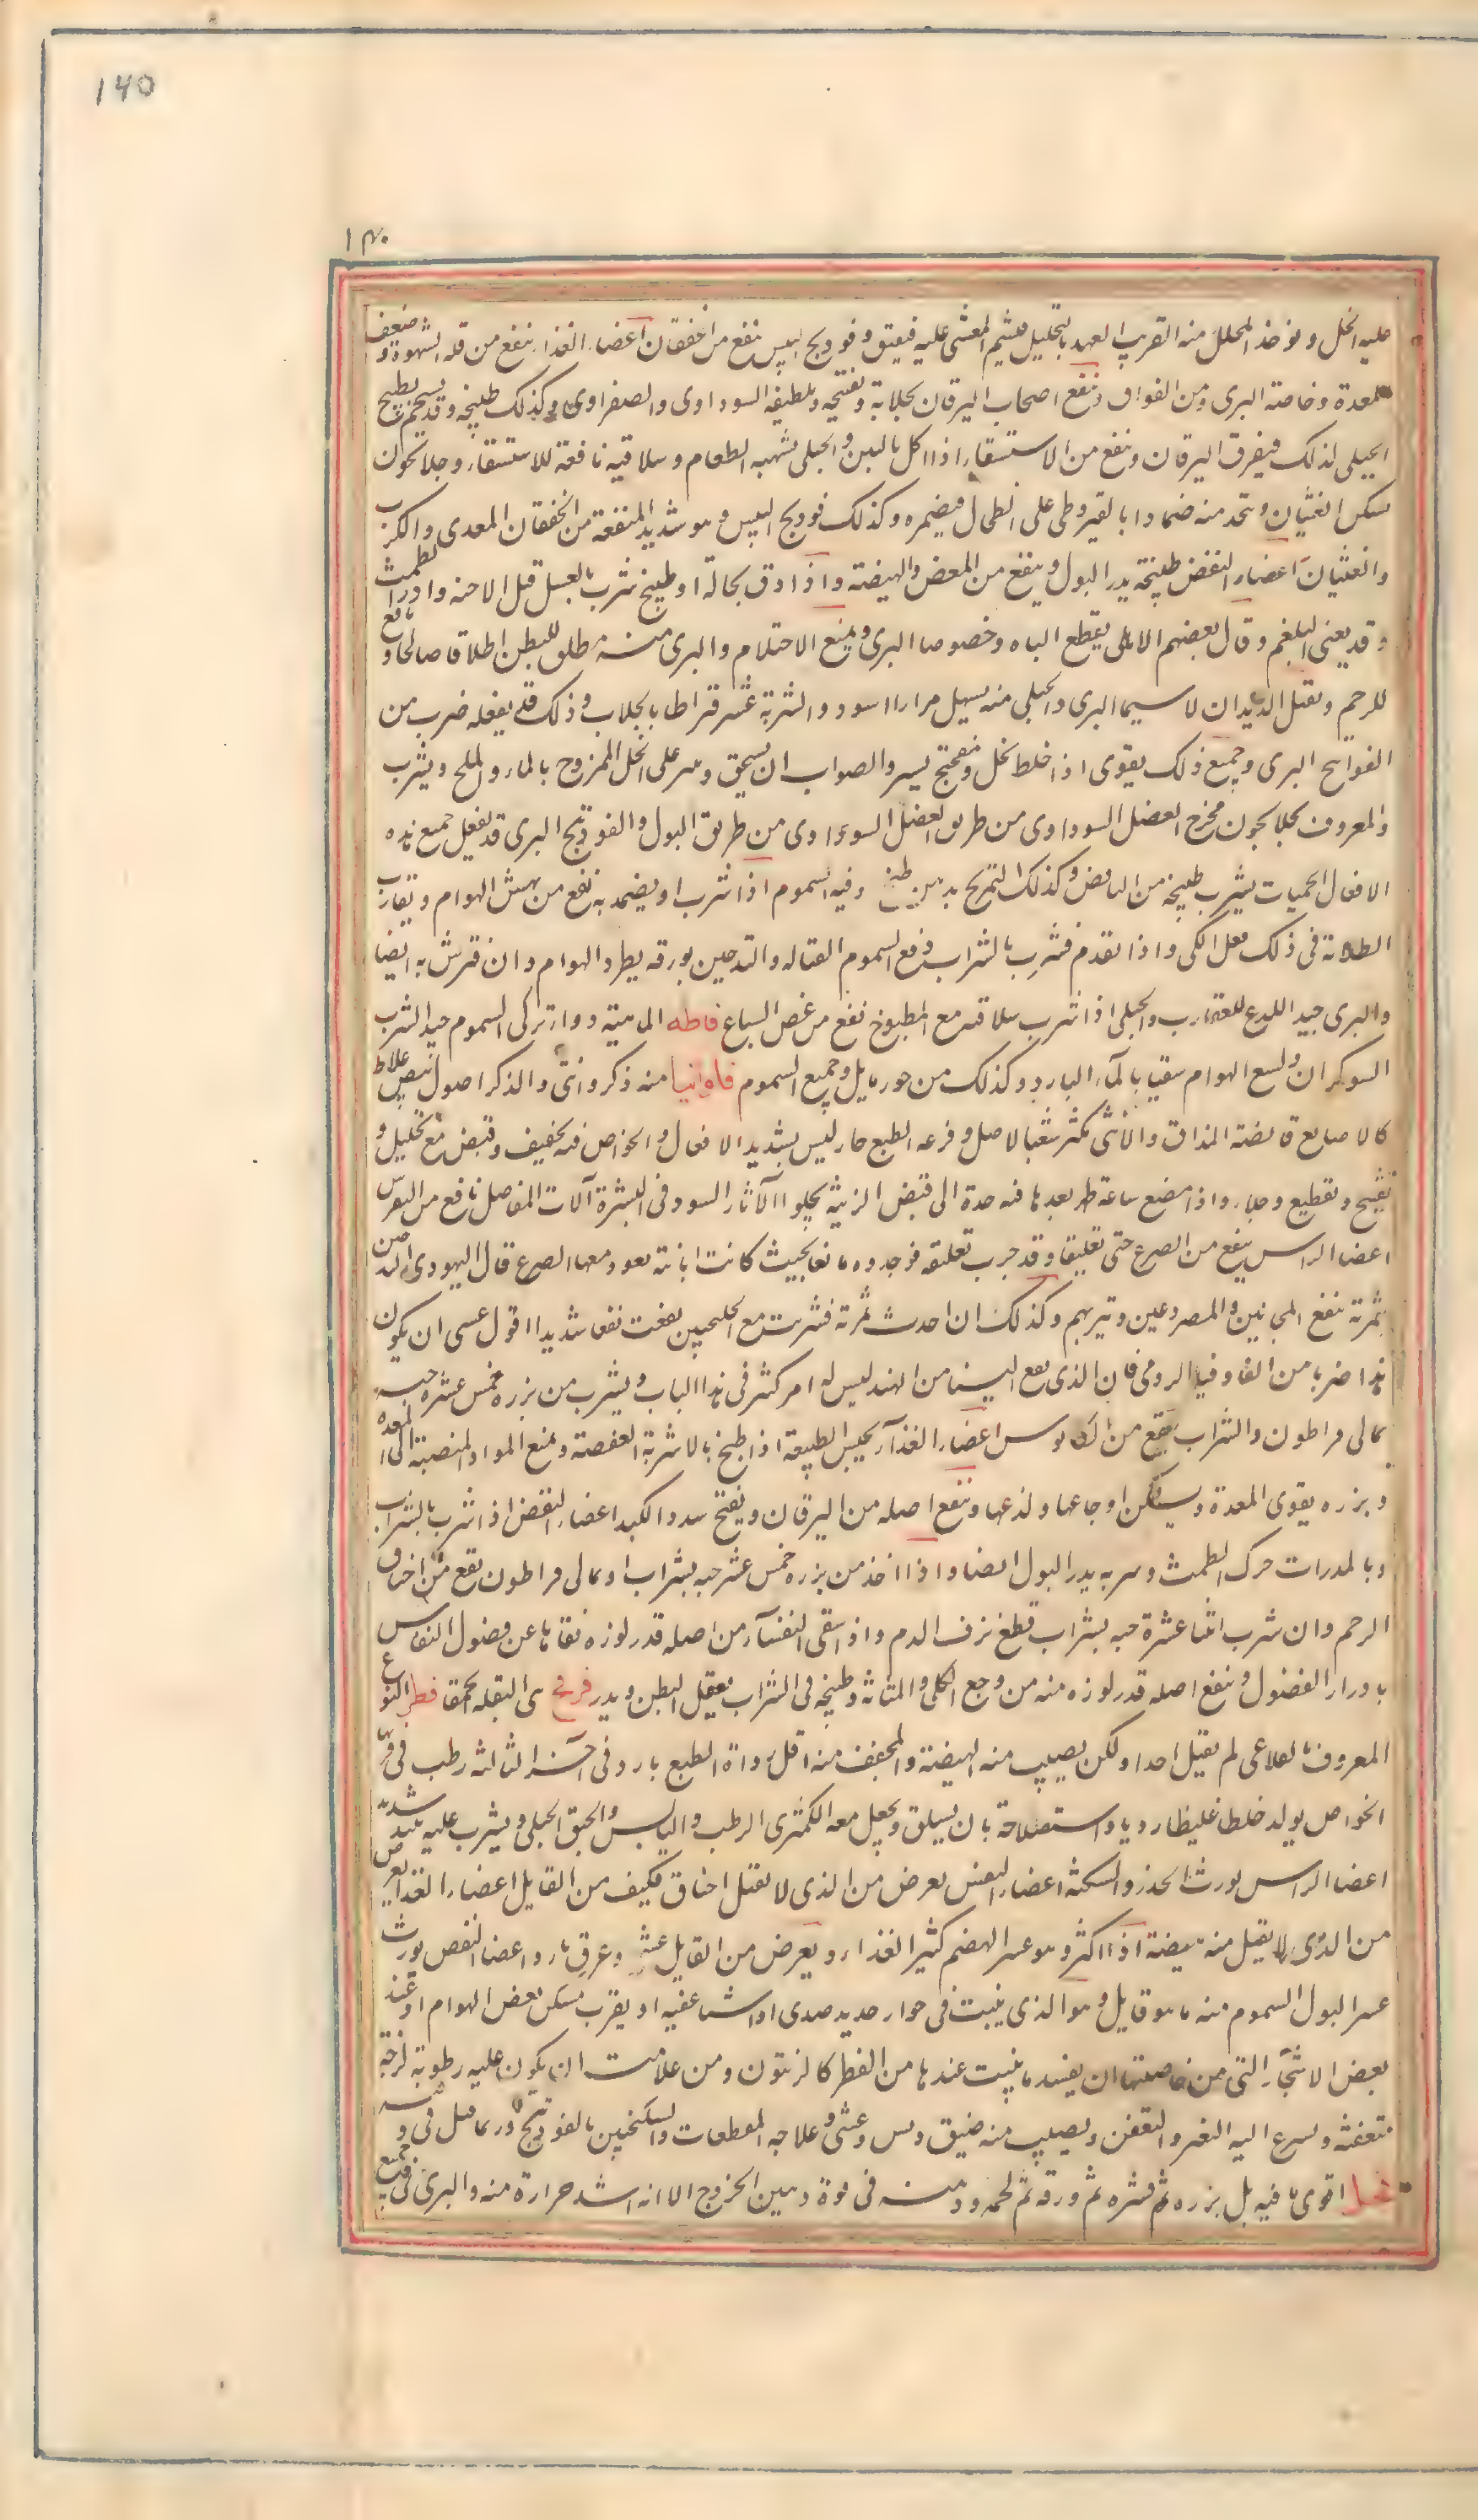 140
عليه الخل ويؤخذ المحلل منه القريب العهد بالتحليل فيشم المغشى عليه فيفيق وفوديج يابس ينفع من الخفقان اعضاء الغذاء ينفع من قلة الشهوة وضعف
المعدة وخاصة البرى ومن الفواق وينفع اصحاب اليرقان بجلائه وتفتيحه وتلطيفه السوداوى والصفراوى وكذلك طبيخه وقد يستحم بطبيخ
الجبلى لذلك فيفرق اليرقان وينفع من الاستسقاء اذا اكل بالتين والجبلى يشهى الطعام وسلاقته نافعة للاستسقاء وجلانجون
يسكن الغثيان ويتخذ منه ضمادا بالقيروطى على الطحال فيضمره وكذلك فوديج اليبس وهو شديد المنفعة من الخفقان المعدى والكرب
والغثيان اعضاء النفض طبيخه يدر البول وينفع من المغص والهيضة واذا دق بحاله او طبخ شرب بالعسل قتل الاجنة وادر الطمث
وقد يعنى البلغم وقال بعضهم الاهلى يقطع الباه وخصوصا البرى ويمنع الاحتلام والبرى منه مطلق للبطن اطلاقا صالحا ونافع
للرحم ويقتل الديدان لا سيما البرى والجبلى منه يسهل مرارا اسود والشربة عشر قيراطا بالجلاب وذلك قد يفعله ضرب من
الفوانج البرى وجميع ذلك يقوى اذا خلط بخل وميفختج يسير والصواب ان يسحق وينثر على الخل الممزوج بالماء والملح ويشرب
والمعروف بجلانجون مخرج الفضل السوداوى من طريق الفضل السوداوى من طريق البول والفودنج البرى قد يفعل جميع هذه
الافعال الحميات يشرب طبيخه من النافض وكذلك التمريخ بدهن طبخ وفيه السموم اذا شرب او يضمد به نفع من نهش الهوام ويقارب
الطلاء فى ذلك فعل الكى واذا تقدم فشرب بالشراب دفع السموم القتاله والتدخين بورقه يطرد الهوام وان فترش به ايضا
والبرى جيد اللدغ للعقارب والجبلى اذا شرب سلاقته مع المطبوخ نفع من عض السباع فاطه الماهية دواء تركى السموم جيد الشرب
السوكران ولسع الهوام سقيا بالماء البارد وكذلك من جوزماثل وجميع السموم فاوانيا منه ذكر وانثى والذكر اصول بيض غلاظ
كالاصابع قابضة المذاق والانثى تكثر شعبا الاصل وفرعه الطبع حار ليس بشديد الافعال والخواص فيه تجفيف وقبض مع تحليل و
تفتيح وتقطيع وجلاء واذا مضغ ساعة ظهر بعدها فيه حدة الى قبض الزينة يجلو الآثار السود فى البشرة آلات المفاصل نافع من النقرس
اعضاء الراس ينفع من الصرع حتى تعليقا وقد جرب تعلقه فوجدوه مانعا بحيث كانت ابانته تعود معها الصرع قال اليهودى التدخين
بثمرته ينفع المجانين والمصروعين وتبريهم وكذلك ان احدث ثمرته فشربت مع الجلنجبين نفعت نفعا شديدا اقول عسى ان يكون
هذا ضربا من الفاونيا الرومى فان الذى يقع الينا من الهند ليس له امر كثير فى هذا الباب ويشرب من بزره خمس عشرة حبة
بمالى قراطون والشراب ينفع من الكابوس اعضاء الغذاء يحبس الطبيعة اذا طبخ بالاشربة العفصة ويمنع المواد المنصبة الى المعدة
وبزره يقوى المعدة ويسكن اوجاعها ولذعها وينفع اصله من اليرقان ويفتح سدد الكبد اعضاء النفض اذا شرب بالشراب
وبالمدرات حرك الطمث وشربه يدر البول ايضا واذا اخذ من بزره خمس عشر حبه بشراب او بمالى قراطون نفع من اختناق
الرحم وان شرب اثنا عشرة حبه بشراب قطع نزف الدم واذا سقى النفساء من اصله قدر لوزه نقاها عن فضول النفاس
بادرار الفضول وينفع اصله قدر لوزه منه من وجع الكلى والمثانة وطبيخه فى الشراب يعقل البطن ويدر فرفخ هى البقلة الحمقا فطر النوع
المعروف بالعلاعى لم يقتل احدا ولكن يصيب منه الهيضة والمجفف منه اقل رداة الطبع بارد فى آخر الثالثة رطب فى قربها
الخواص يولد خلطا غليظا رديا واستصلاحه بان يسلق ويجعل معه الكمثرى الرطب واليابس والحبق الجبلى ويشرب عليه نبيذ شديد
اعضا الراس يورث الخدر والسكتة اعضاء النفس يعرض من الذى لا يقتل اختناق فكيف من القاتل اعضاء الغذا يعرض
من الذى لا يقتل منه هيضة اذا اكثر وهو عسر الهضم كثير الغذاء ويعرض من القاتل غشى وعرق بارد اعضا النفض يورث
عسر البول السموم منه ما هو قاتل وهو الذى ينبت فى جوار حديد صدى او اشيا عفنه او يقرب مسكن بعض الهوام او عند
بعض الاشجار التى من خاصيتها ان يفسد ما ينبت عندها من الفطر كالزيتون ومن علامته ان يكون عليه رطوبة لزجة
متعفنة ويسرع اليه التغير والتعفن ويصيب منه ضيق نفس وغشى وعلاجه المقطعات والسكنجبين بالفودنج وربما قتل فى
فجل اقوى ما فيه بل بزره ثم قشره ثم ورقه ثم لحمه ودهنه فى قوة دهن الخروع الا انه اشد حرارة منه والبرى فى جميع